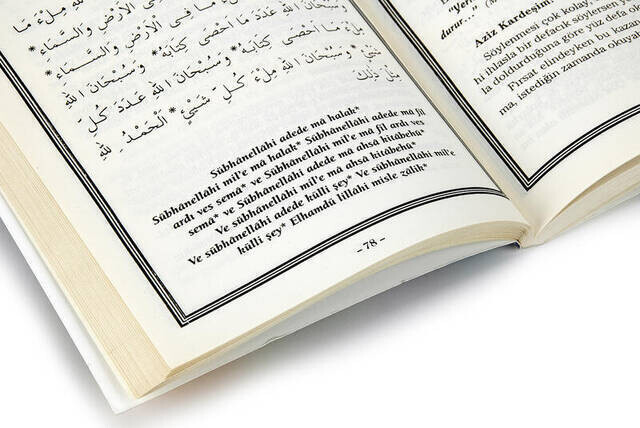 سُبْحَانَ اللهِ عَدَدَ مَا اَحْصَى كِتَابُهُ* وَسُبْحَانَ اللهِ مِلْءَ
مَا فِى الْاَرْضِ وَالسَّمَاءِ*
مَا اَحْصَى كِتَابُهُ* وَسُبْحَانَ اللهِ عَدَدَ كُلِّ
شَيْءٍ* وَسُبْحَانَ اللهِ مِلْءَ كُلِّ شَيْءٍ* اَلْحَمْدُ لِلّٰهِ
مِثْلَ ذٰلِكَ*
Sübhânellâhi adede mâ halak*
Sübhânellâhi mil'e mâ halak* Sübhânellâhi adede mâ fil
ardı ves semâ* ve Sübhânellâhi mil'e mâ fil ardı ves
semâ* ve Sübhânellâhi adede mâ ahsâ kitâbehû*
Ve sübhânellâhi mil'e mâ ahsâ kitâbehû*
Ve sübhânellâhi adede külli şey* Ve sübhânellâhi mil'e
külli şey* Elhamdü lillâhi misle zâlik*
- 78 -
"Yer
durur..."
Aziz Kardeşim
Söylenmesi çok kolay,
hi ihlasla bir defacık söylersen ye
la doldurduğuna göre yüz defa o
Fırsat elindeyken bu kaza
ma, istediğin zamanda okuya